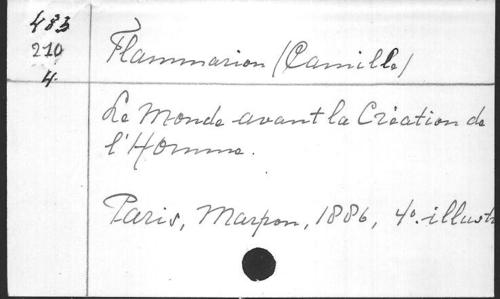 483
210
4
Flammarion (Camille)
Le Monde avant la Création de
l'Homme.
Paris, Marpon, 1886, 4º. illustr